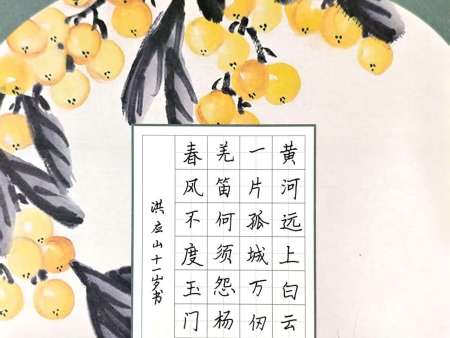 黄河远上白云
一片孤城万仞
羌笛何须怨杨
春风不度玉门
洪应山十一岁书